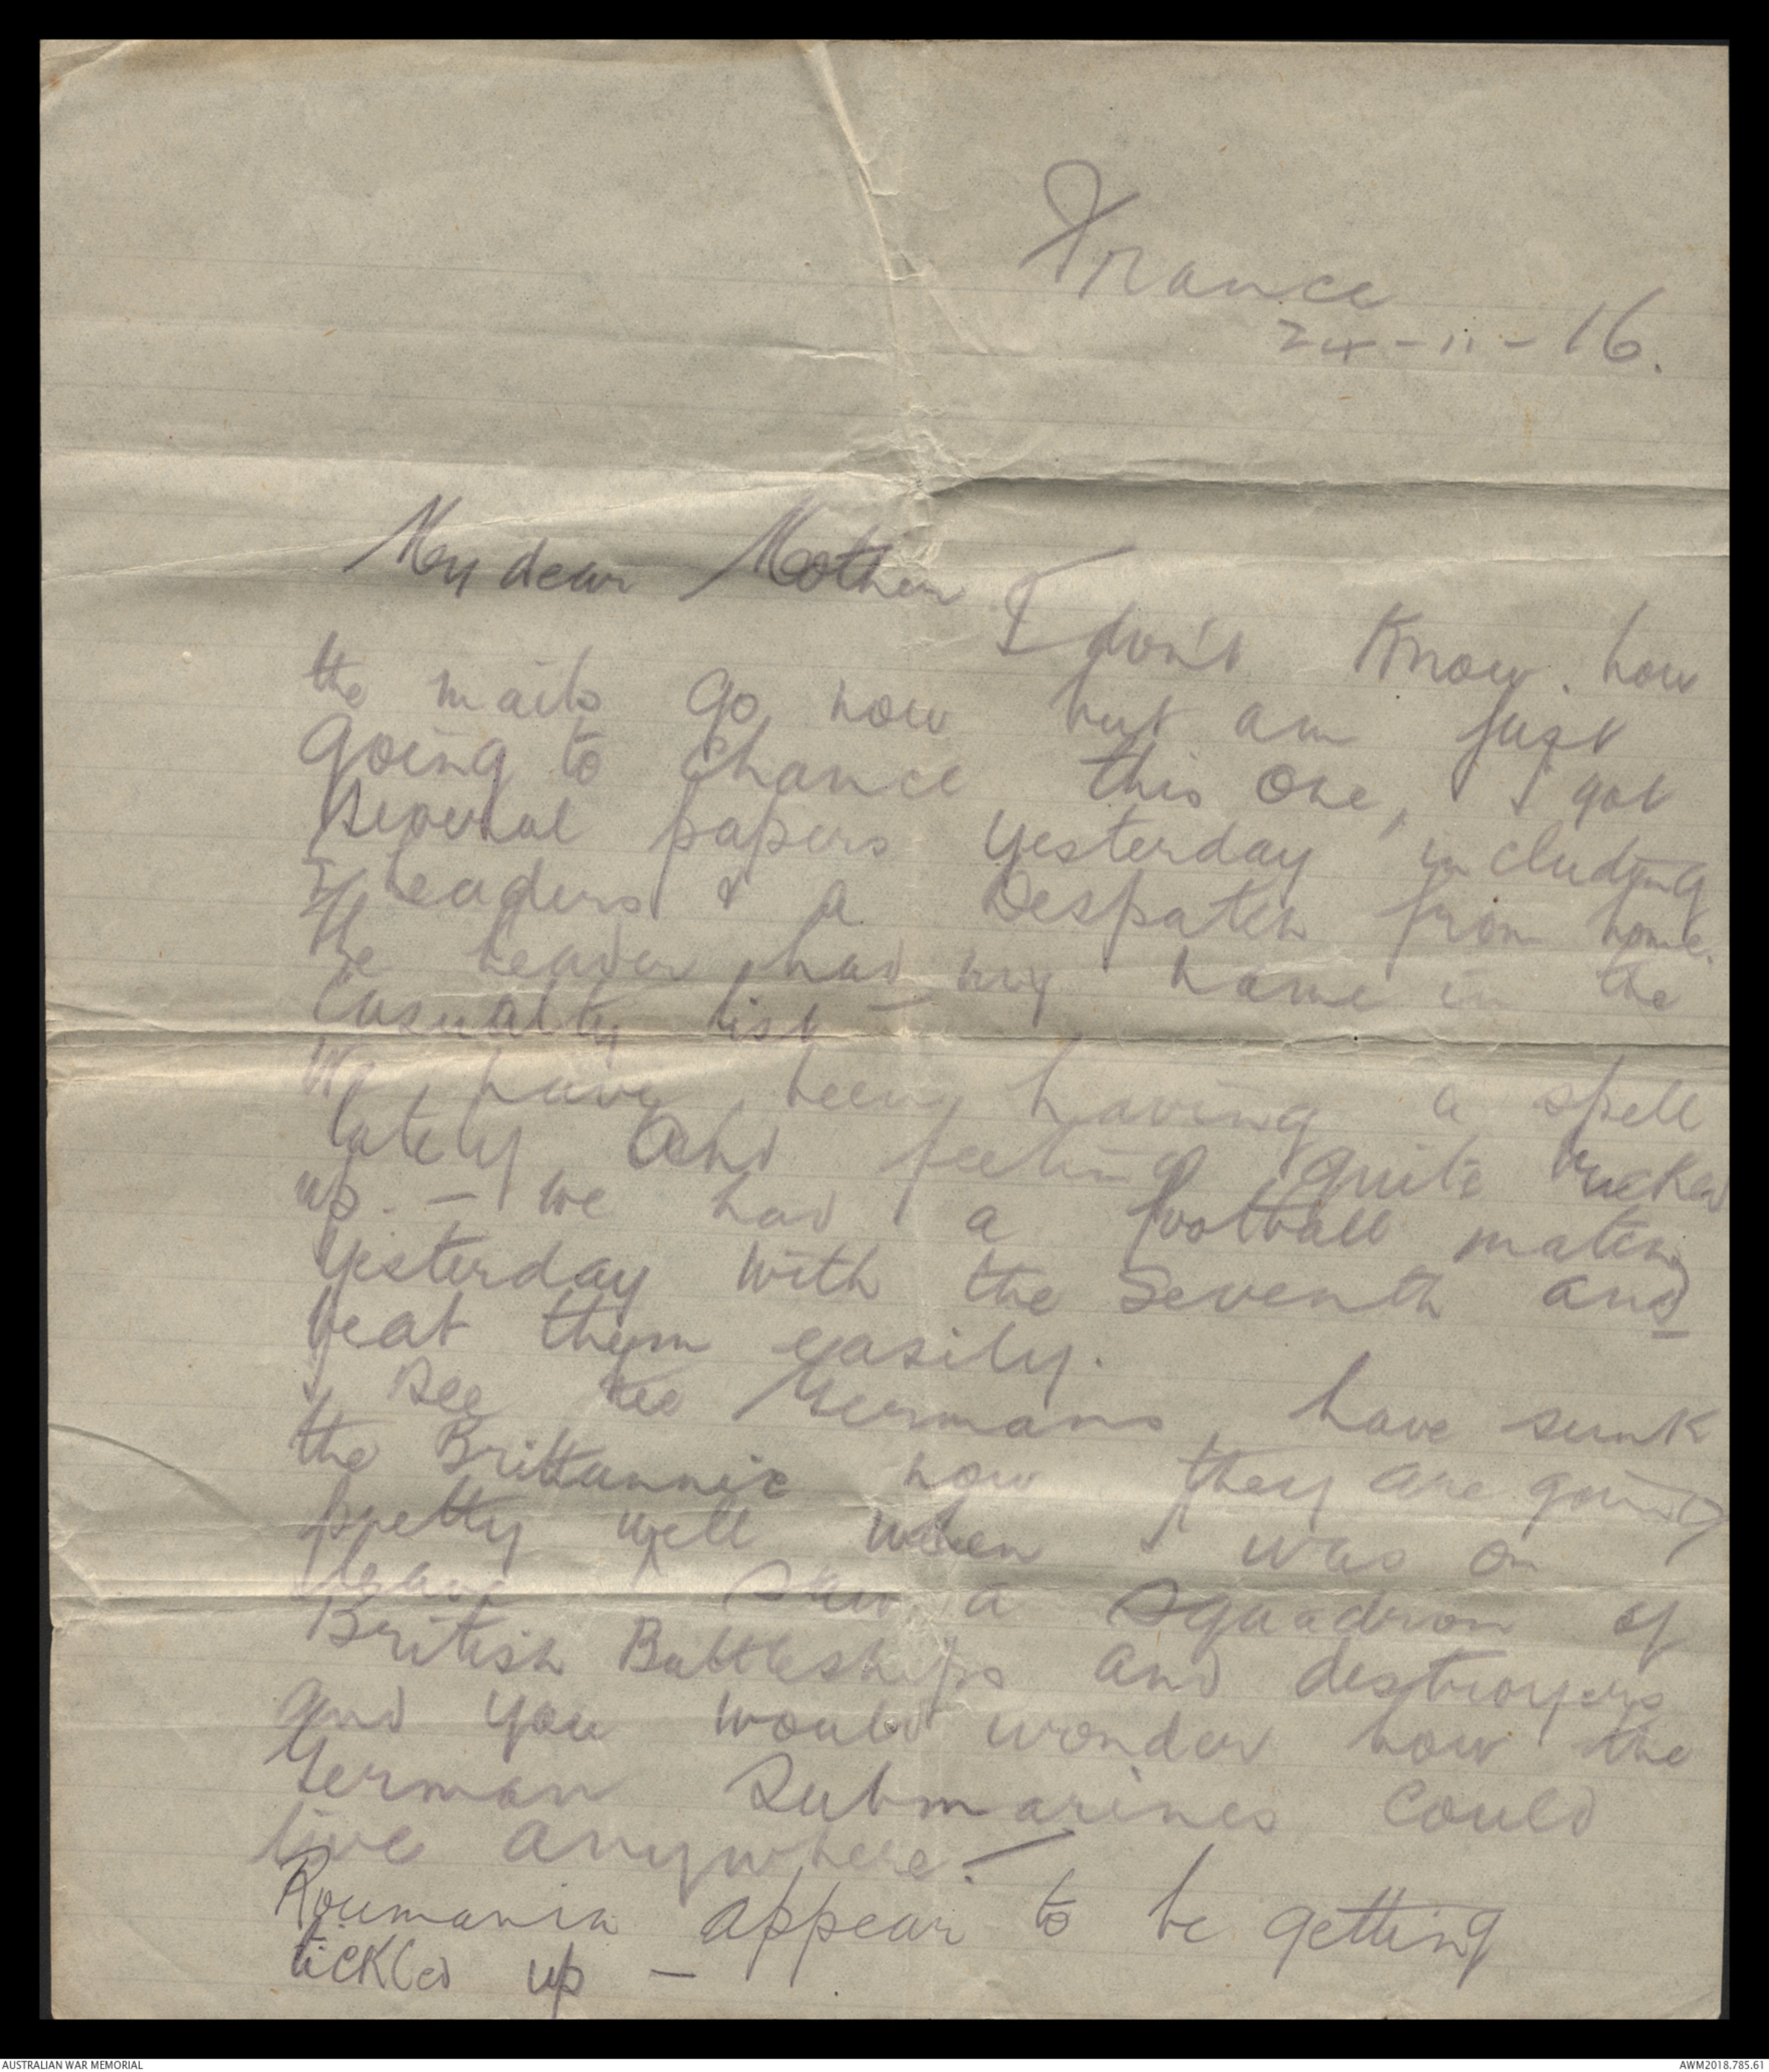 France
24-11-16.
My dear Mother
I don't know how
the mails go now but am just
going to chance this one, I got
several papers yesterday including
Leaders & a Despatch from home.
The Leader had my name in the
Casualty list –
We have been having a spell
lately and feeling quite bucked
up. – we had a football match
yesterday with the seventh and
beat them easily.
I see the Germans have sunk
the Brittannic now they are going
pretty well when I was on
leave I saw a squadron of
British Battleships and destroyers
and you would wonder how the
German Submarines could
live anywhere. –
Roumania appear to be getting
tickled up –
AUSTRALIAN WAR MEMORIAL
AWM2018.785.61